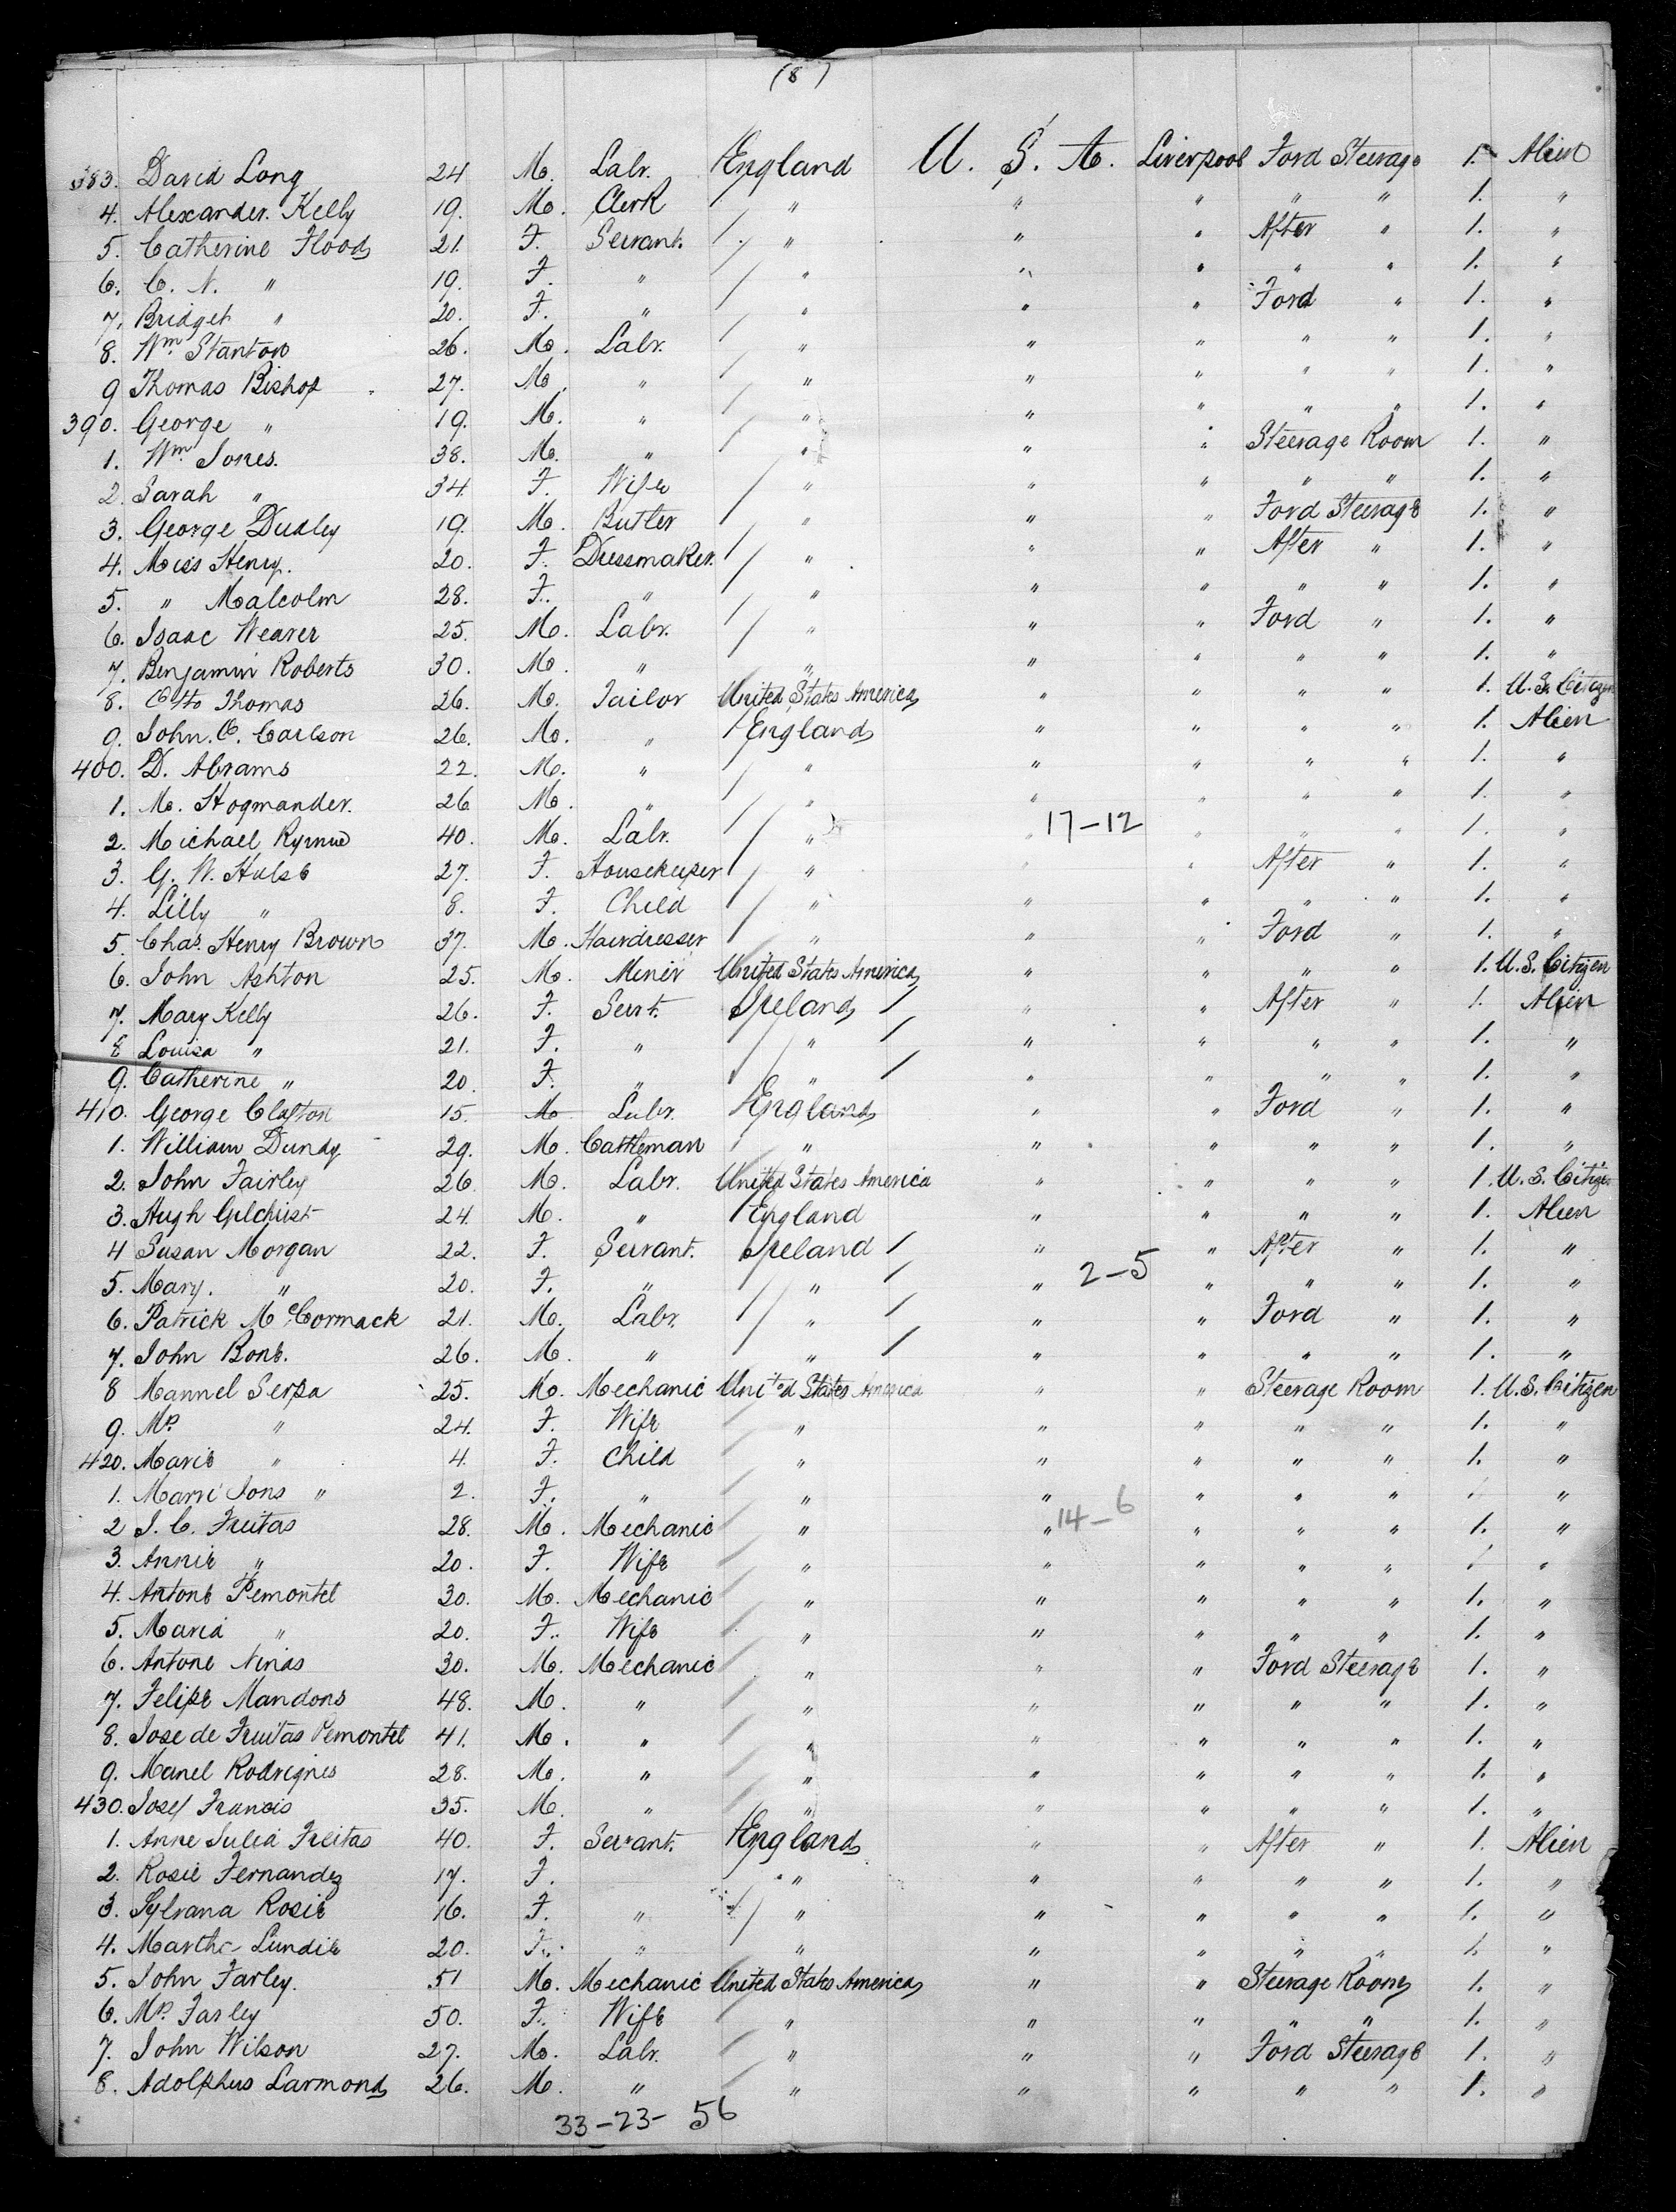 (8)
383. David Long 24 M. Labr. England U. S. A. Liverpool Ford Steerage 1. Alien
4. Alexander Kelly 19. M. Clerk " " " " " 1. "
5. Catherine Flood 21. F. Servant. " " " After " 1. "
6. C. N. " 19. F. " " " " " " 1. "
7. Bridget " 20. F. " " " " Ford " 1. "
8. Wm Stanton 26. M. Labr. " " " " " 1. "
9 Thomas Bishop 27. M. " " " " " " 1. "
390. George " 19. M. " " " " " " 1. "
1. Wm Jones. 38. M. " " " " Steerage Room 1. "
2. Sarah " 34. F. Wife " " " " " 1. "
3. George Dudley 19. M. Butler " " " Ford Steerage 1. "
4. Miss Henry. 20. F. Dressmaker. " " " After " 1. "
5. " Malcolm 28. F. " " " " " " 1. "
6. Isaac Weaver 25. M. Labr. " " " Ford " 1. "
7. Benjamin Roberts 30. M. " " " " " " 1. "
8. Otto Thomas 26. M. Tailor United States America " " " " 1. U. S. Citizen
9. John. O. Carlson 26. M. " England " " " " 1. Alien
400. D. Abrams 22. M. " " " " " " 1. "
1. M. Hogmander. 26. M. " " " " " " 1. "
2. Michael 40. M. Labr. " " 17-12 " " " 1. "
3. G. W. Hulse 27. F. Housekeeper " " " After " 1. "
4. Lilly " 8. F. Child " " " " " 1. "
5. Chas. Henry Brown 37. M. Hairdresser " " " Ford " 1. "
6. John Ashton 25. M. Miner United States America " " " " 1. U. S. Citizen
7. Mary Kelly 26. F. Servt. Ireland " " After " 1. Alien
8 Louisa " 21. F. " " " " " " 1. "
9. Catherine " 20. F. " " " " " " 1. "
410. George Clafton 15. M. Labr. England " " Ford " 1. "
1. William Dundy 29. M. Cattleman " " " " " 1. "
2. John Fairley 26. M. Labr. United States America " " " " 1. U. S. Citizen
3. Hugh Gilchrist 24. M. " England " " " " 1. Alien
4 Susan Morgan 22. F. Servant. Ireland " " After " 1. "
5. Mary. " 20. F. " " " 2-5 " " " 1. "
6. Patrick McCormack 21. M. Labr. " " " Ford " 1. "
7. John Bone. 26. M. " " " " " " 1. "
8 Mannel Serpa 25. M. Mechanic United States America " " Steerage Room 1. U. S. Citizen
9. Mrs " 24. F. Wife " " " " " 1. "
420. Marie " 4. F. Child " " " " " 1. "
1. Marri Jons " 2. F. " " " " " " "
2 J. C. Freitas 28. M. Mechanic " " 14-6 " " " 1. "
3. Annie " 20. F. Wife " " " " " "
4. Antone Pemontel 30. M. Mechanic " " " " " 1. "
5. Maria " 20. F. Wife " " " " " 1. "
6. Antone Ninas 30. M. Mechanic " " " Ford Steerage 1. "
7. Felipe Mandons 48. M. " " " " " " 1. "
8. Jose de Freitas Pemontel 41. M. " " " " " " 1. "
9. Manel Rodrignes 28. M. " " " " " " 1. "
430. Josef Francis 35. M. " " " " " " 1. "
1. Anne Julia Freitas 40. F. Servant. England " " After " 1. Alien
2. Rosie Fernandez 17. F. " " " " " 1. "
3. Sylvana Rosie 16. F. " " " " " " 1. "
4. Martha Lundie 20. F. " " " " " " 1. "
5. John Farley. 51 M. Mechanic United States America " " Steerage Room 1. "
6. Mrs Farley 50. F. Wife " " " " " 1. "
7. John Wilson 27. M. Labr. " " " Ford Steerage 1. "
8. Adolphus Larmond 26. M. " " " " " " 1. "
33-23- 56